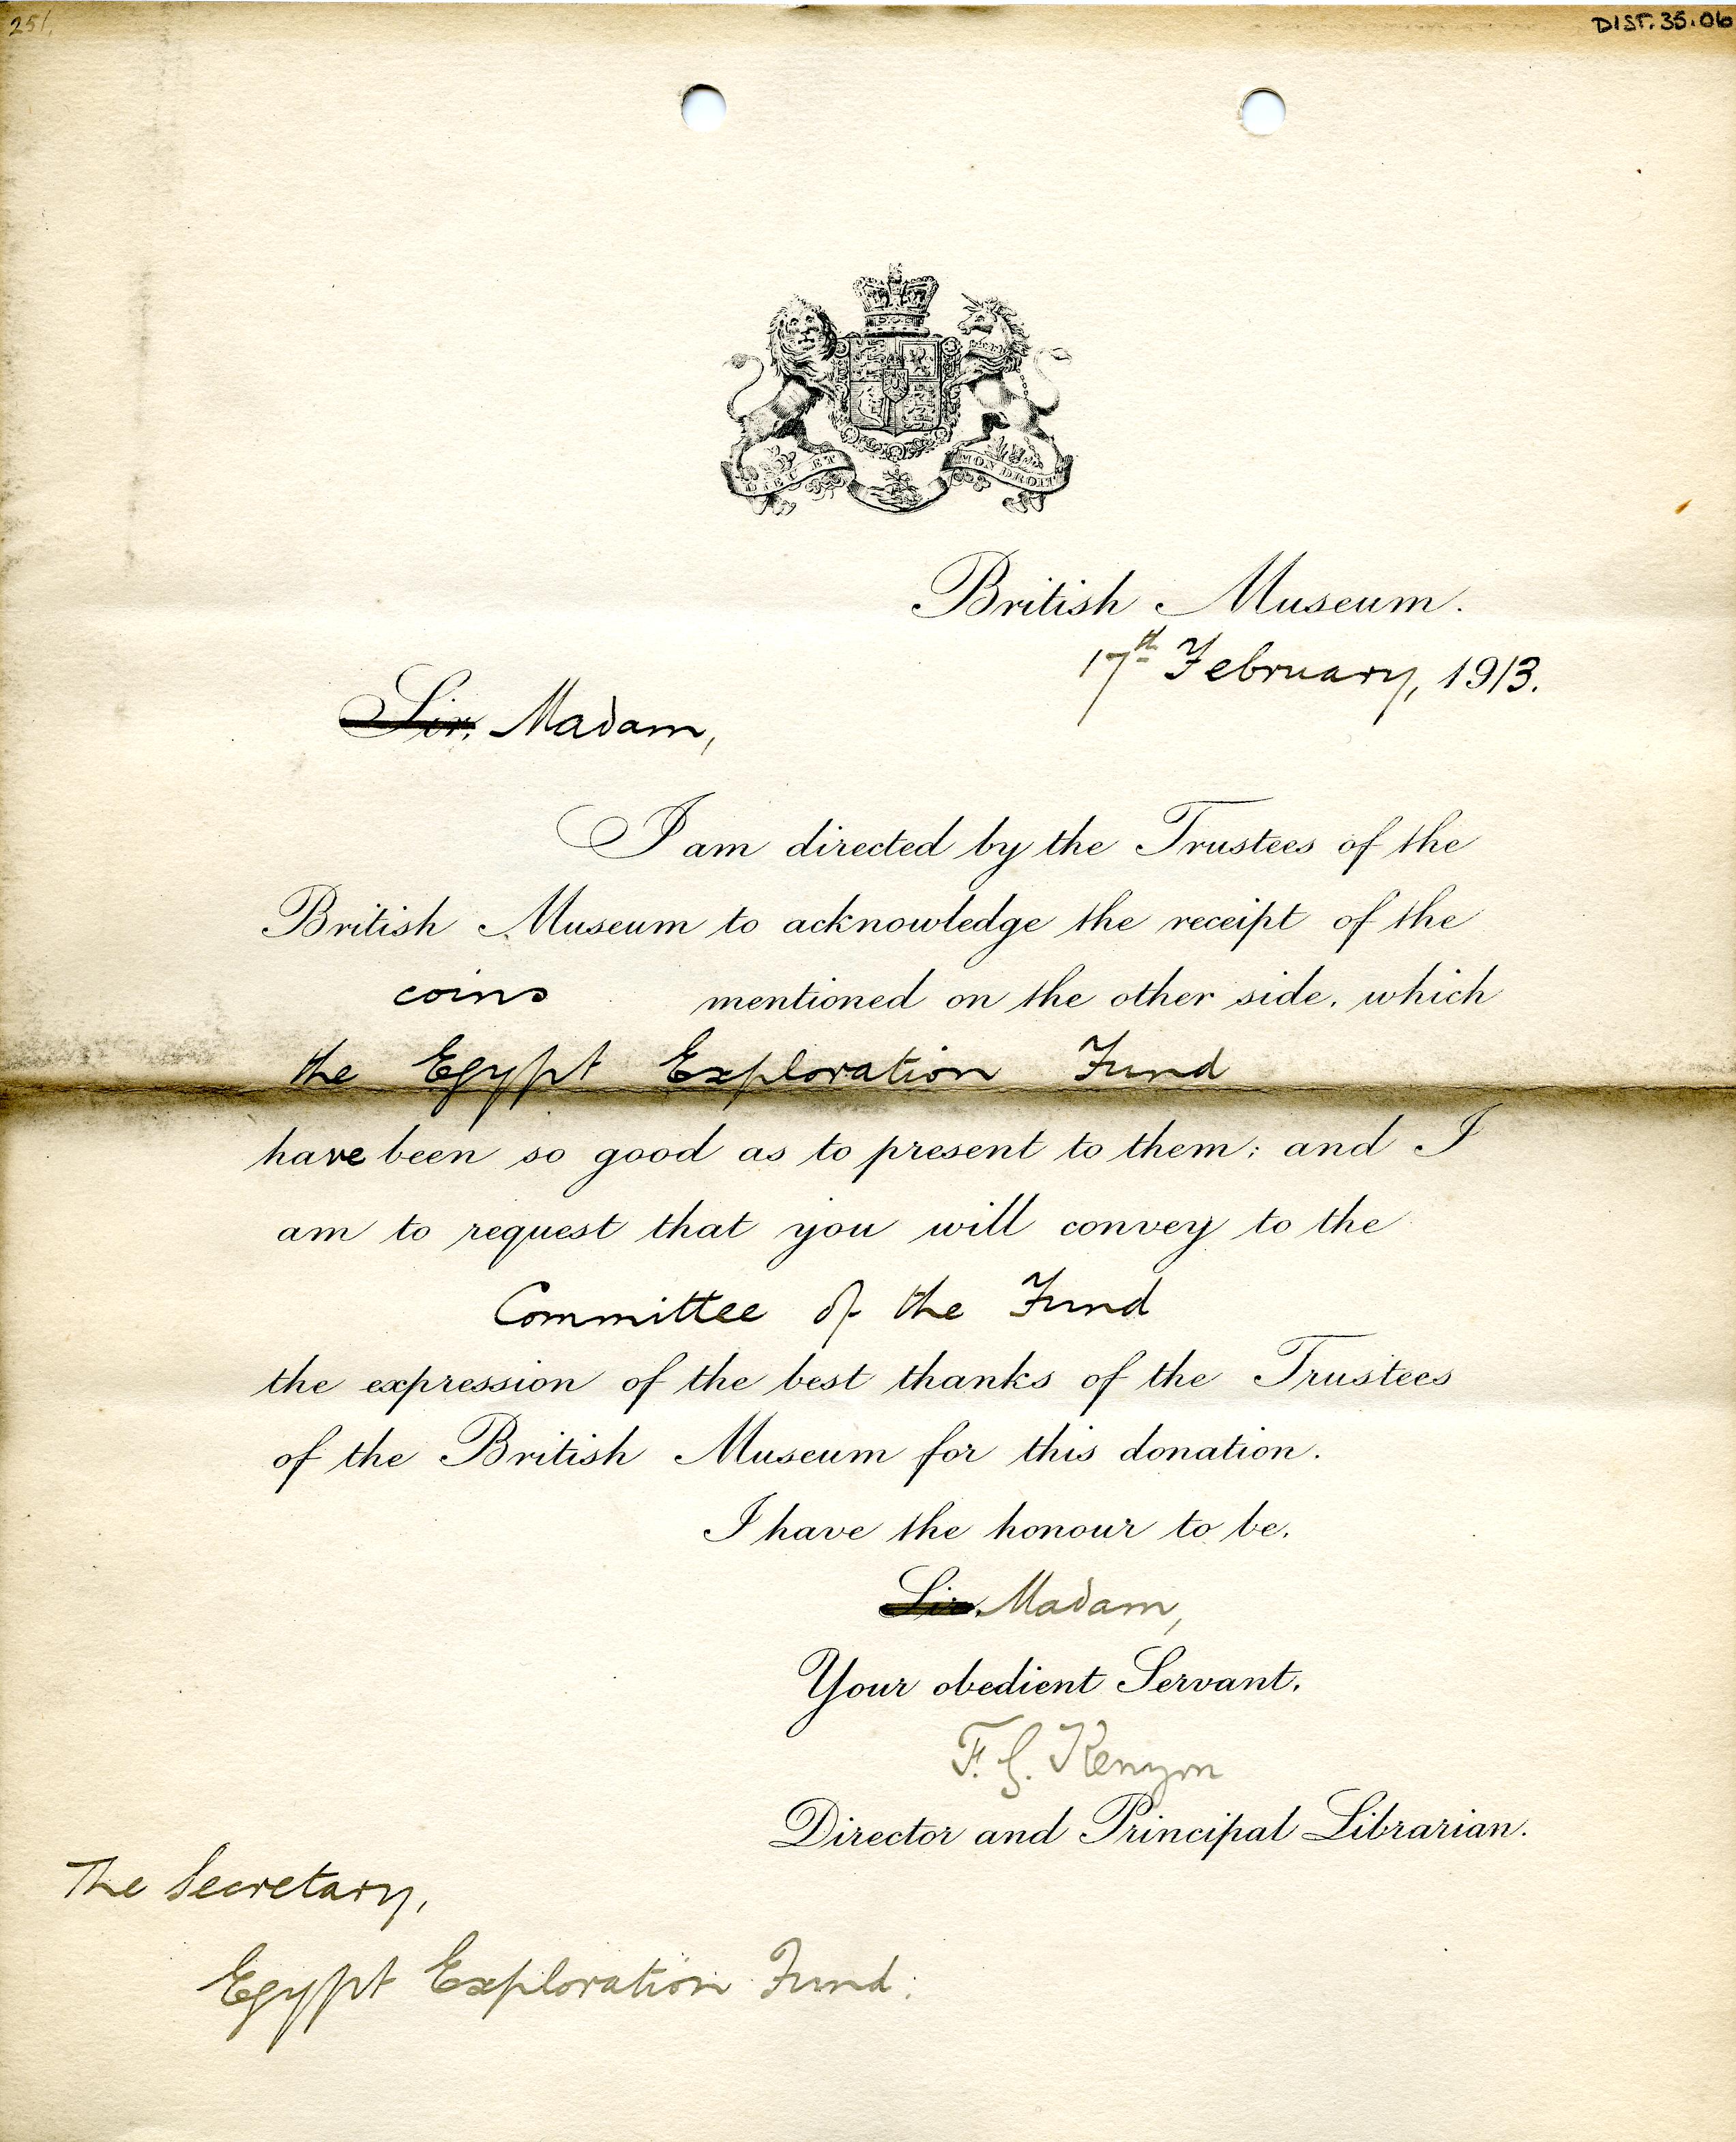 251.
DIST.35.06
DIEU ET MON DROIT
British Museum.
17th February, 1913.
Sir, Madam,
I am directed by the Trustees of the
British Museum to acknowledge the receipt of the
coins mentioned on the other side, which
the Egypt Exploration Fund
have been so good as to present to them; and I
am to request that you will convey to the
Committee of the Fund
the expression of the best thanks of the Trustees
of the British Museum for this donation.
I have the honour to be,
Sir, Madam,
Your obedient Servant,
F. G. Kenyon
Director and Principal Librarian.
The Secretary,
Egypt Exploration Fund.